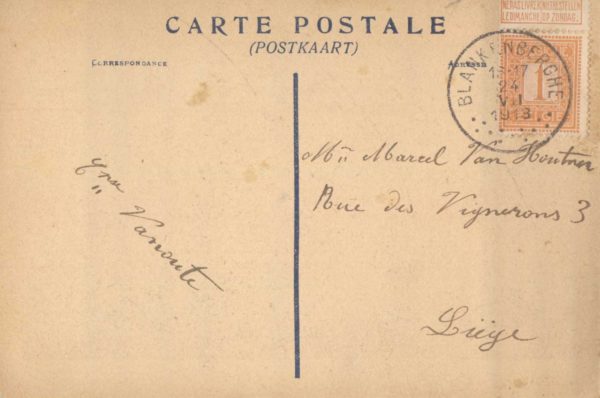 CARTE POSTALE
(POSTKAART)
CORRESPONDANCE
ADRESSE
NE PAS LIVRER
LE DIMANCHE
NIET BESTELLEN
OP ZONDAG
1
BLANKENBERGHE
24
VII
1913
Marcel Van
Rue des Vignerons 3
Liège
Vanoute